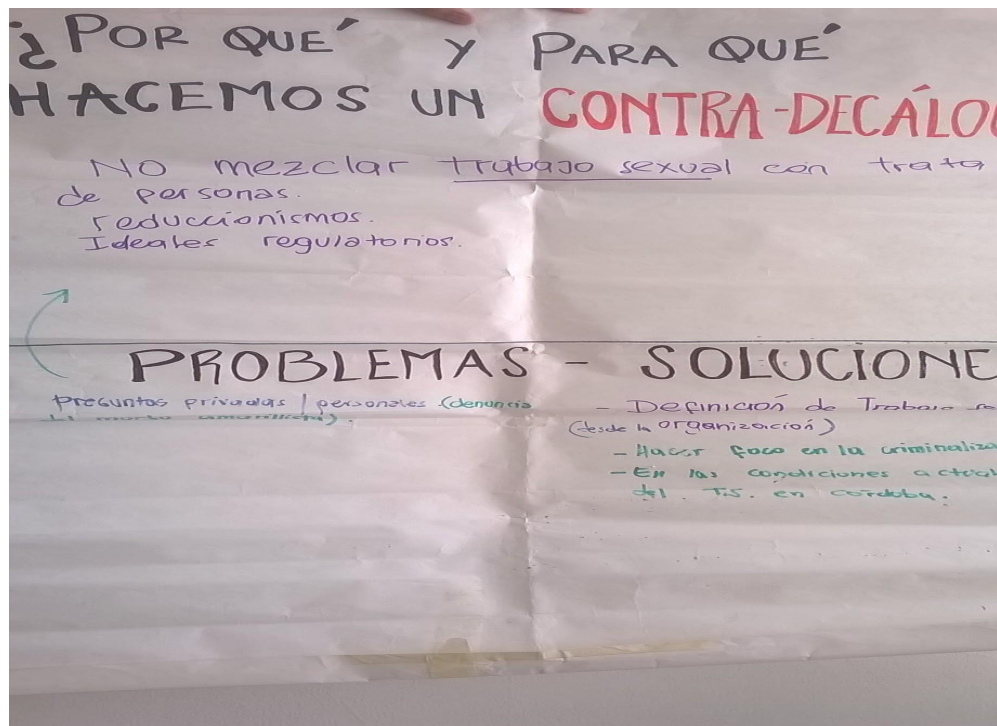 ¿POR QUÉ Y PARA QUÉ
HACEMOS UN CONTRA-DECÁLO
No mezclar trabajo sexual con trata
de personas.
reduccionismos.
Ideales regulatorios.
PROBLEMAS - SOLUCIONE
Preguntas privadas / personales (denuncia
amarillista).
- Definición de Trabajo
(desde la organización)
- Hacer foco en la criminaliza
- En las condiciones actual
del T.S. en córdoba.